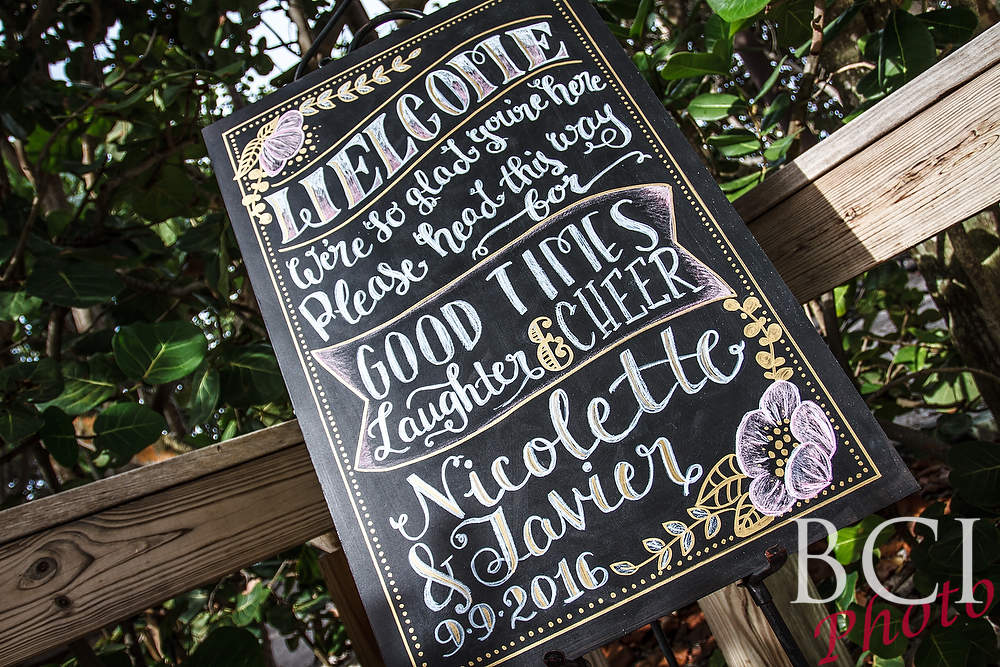 WELCOME
We're so glad you're here
Please head this way
for
GOOD TIMES
Laughter & CHEER
Nicolette
& Javier
9.9.2016
BCI
Photo